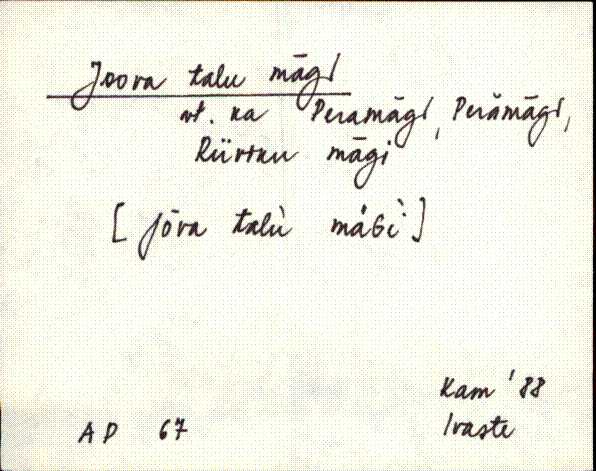 Joora talu mägi
vt. ka Peramägi, Perämägi,
mägi
[ jōra talù mäGì ]
Kam '88
AP 67 Ivaste